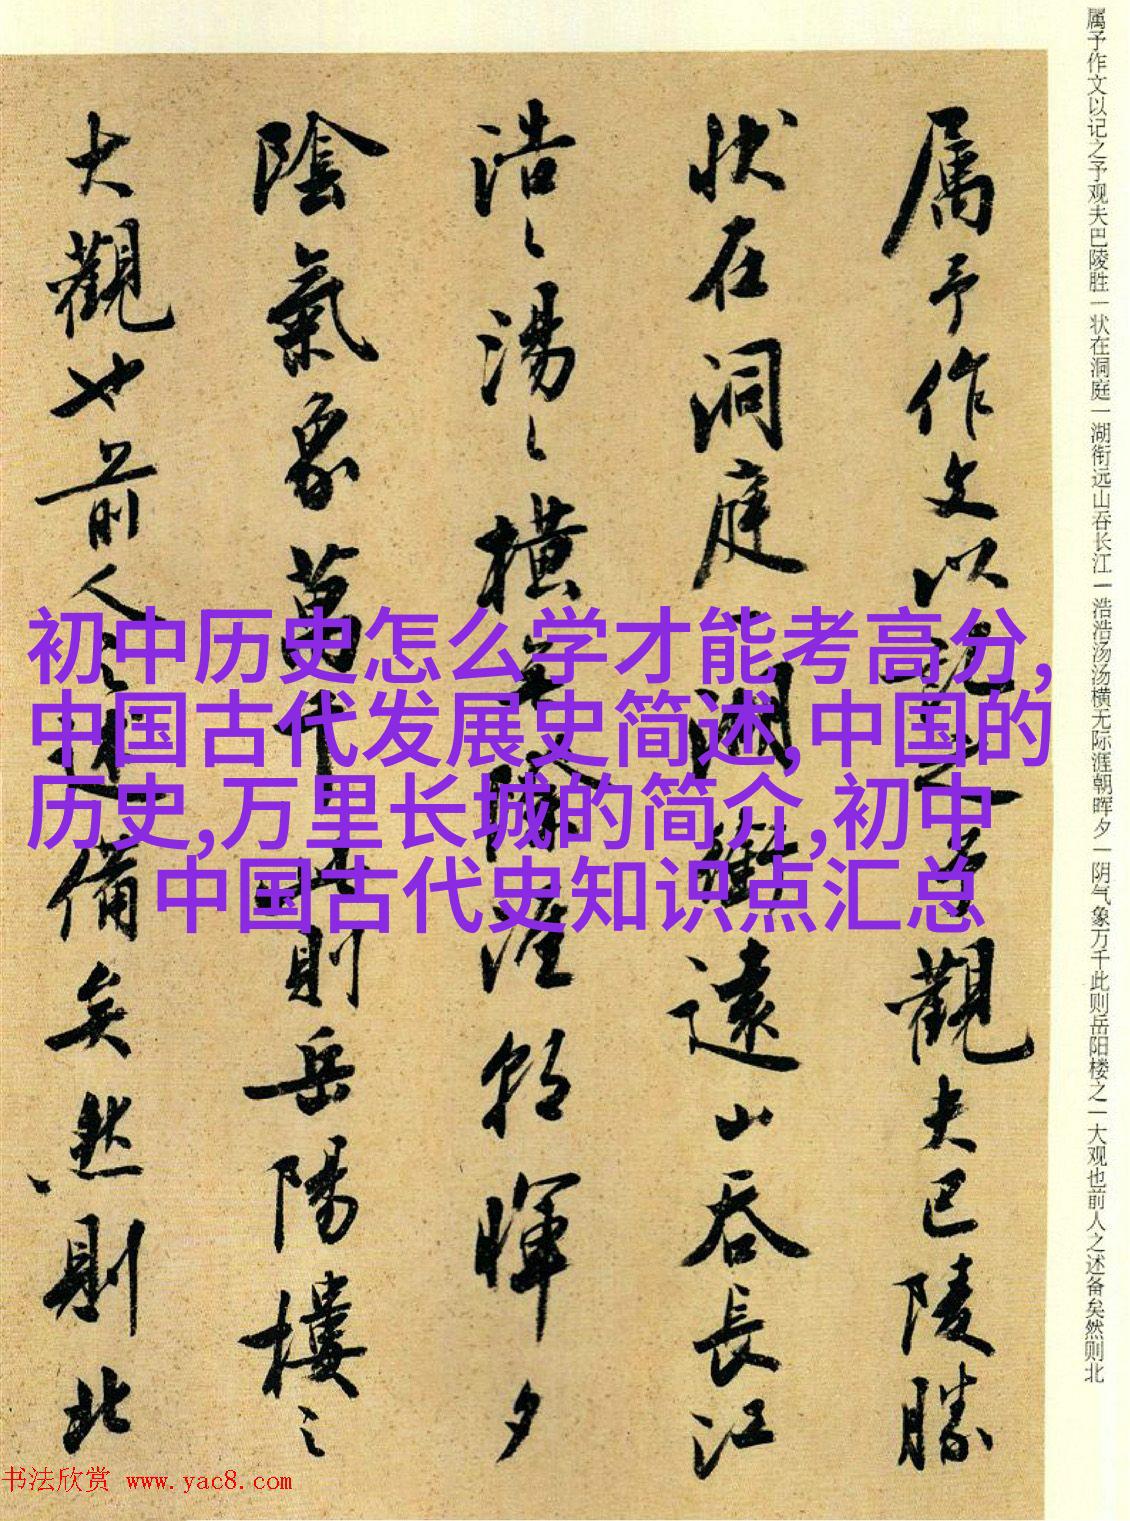 属予作文以记之予观夫巴陵胜一状在洞庭一湖衔远山吞长江一浩浩汤汤横无际涯朝晖夕一阴气象万千此则岳阳楼之一大观也前人之述备矣然则北
属予作文以記之予觀夫巴陵勝
狀在洞庭一湖銜遠山吞長江
浩〻湯〻橫無際涯朝暉夕
陰氣象萬千此則岳陽樓之
大觀也前人之述備矣然則北
初中历史怎么学才能考高分,
中国古代发展史简述,中国的
历史,万里长城的简介,初中
中国古代史知识点汇总
书法欣赏 www.yac8.com